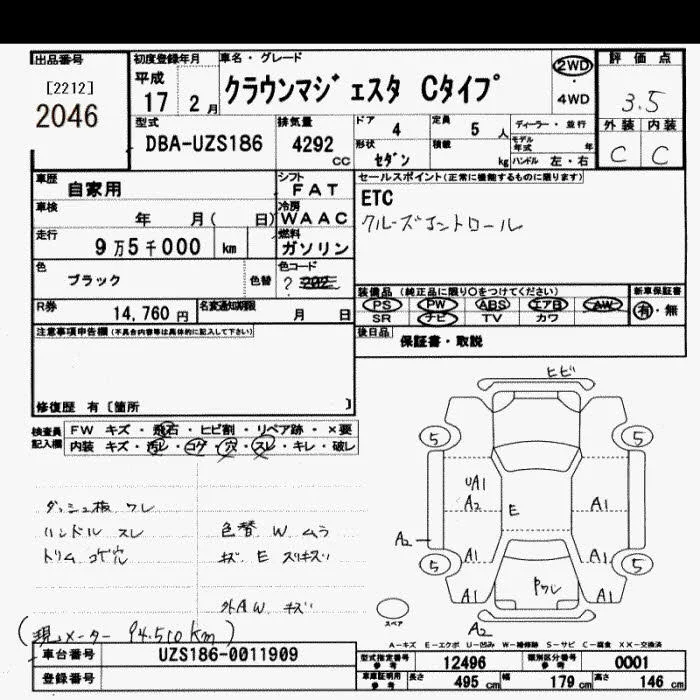 出品番号
[2212]
2046
初度登録年月
平成
17 2 月
車名・グレード
クラウンマジェスタ Cタイプ
2WD
・
4WD
評価点
3.5
外装 内装
C C
型式
DBA-UZS186
排気量
4292 CC
ドア 4
定員 5 人
ディーラー・並行
形状 セダン
積載 kg
モデル年式 年
ハンドル 左・右
車歴 自家用
シフト FAT
車検 年 月( 日)
冷房 WAAC
走行 9万5千000 km
燃料 ガソリン
セールスポイント(正常に機能するものに限ります)
ETC
クルーズコントロール
色 ブラック
色替
色コード
? 202
R券 14,760 円
名変通知期限 月 日
装備品 (純正品に限り○をつけてください)
PS PW ABS エアB AW
SR ナビ TV カワ
新車保証書
有・無
後日品 保証書・取説
注意事項申告欄(不具合内容等は具体的に記入して下さい)
修復歴 有〔箇所 〕
検査員記入欄
FW キズ・飛石・ヒビ割・リペア跡・×要
内装 キズ・汚レ・コゲ・穴・スレ・キレ・破レ
ダッシュ板 ワレ
ハンドル スレ
トリム コゲ穴
色替 W ムラ
キズ E スリキズ
外AW キズ
(現メーター 94.510km)
ヒビ
5 5
UA1
A2
E
A1
A2
A1 A1
5 5
A1 A1
Pワレ
A2
スペア
A-キズ E-エクボ U-凹み W-補修跡 S-サビ C-腐食 XX-交換済
車台番号 UZS186-0011909
型式指定番号 参考 12496
類別区分番号 参考 0001
登録番号
車庫証明用 参考 長さ 495 cm 幅 179 cm 高さ 146 cm